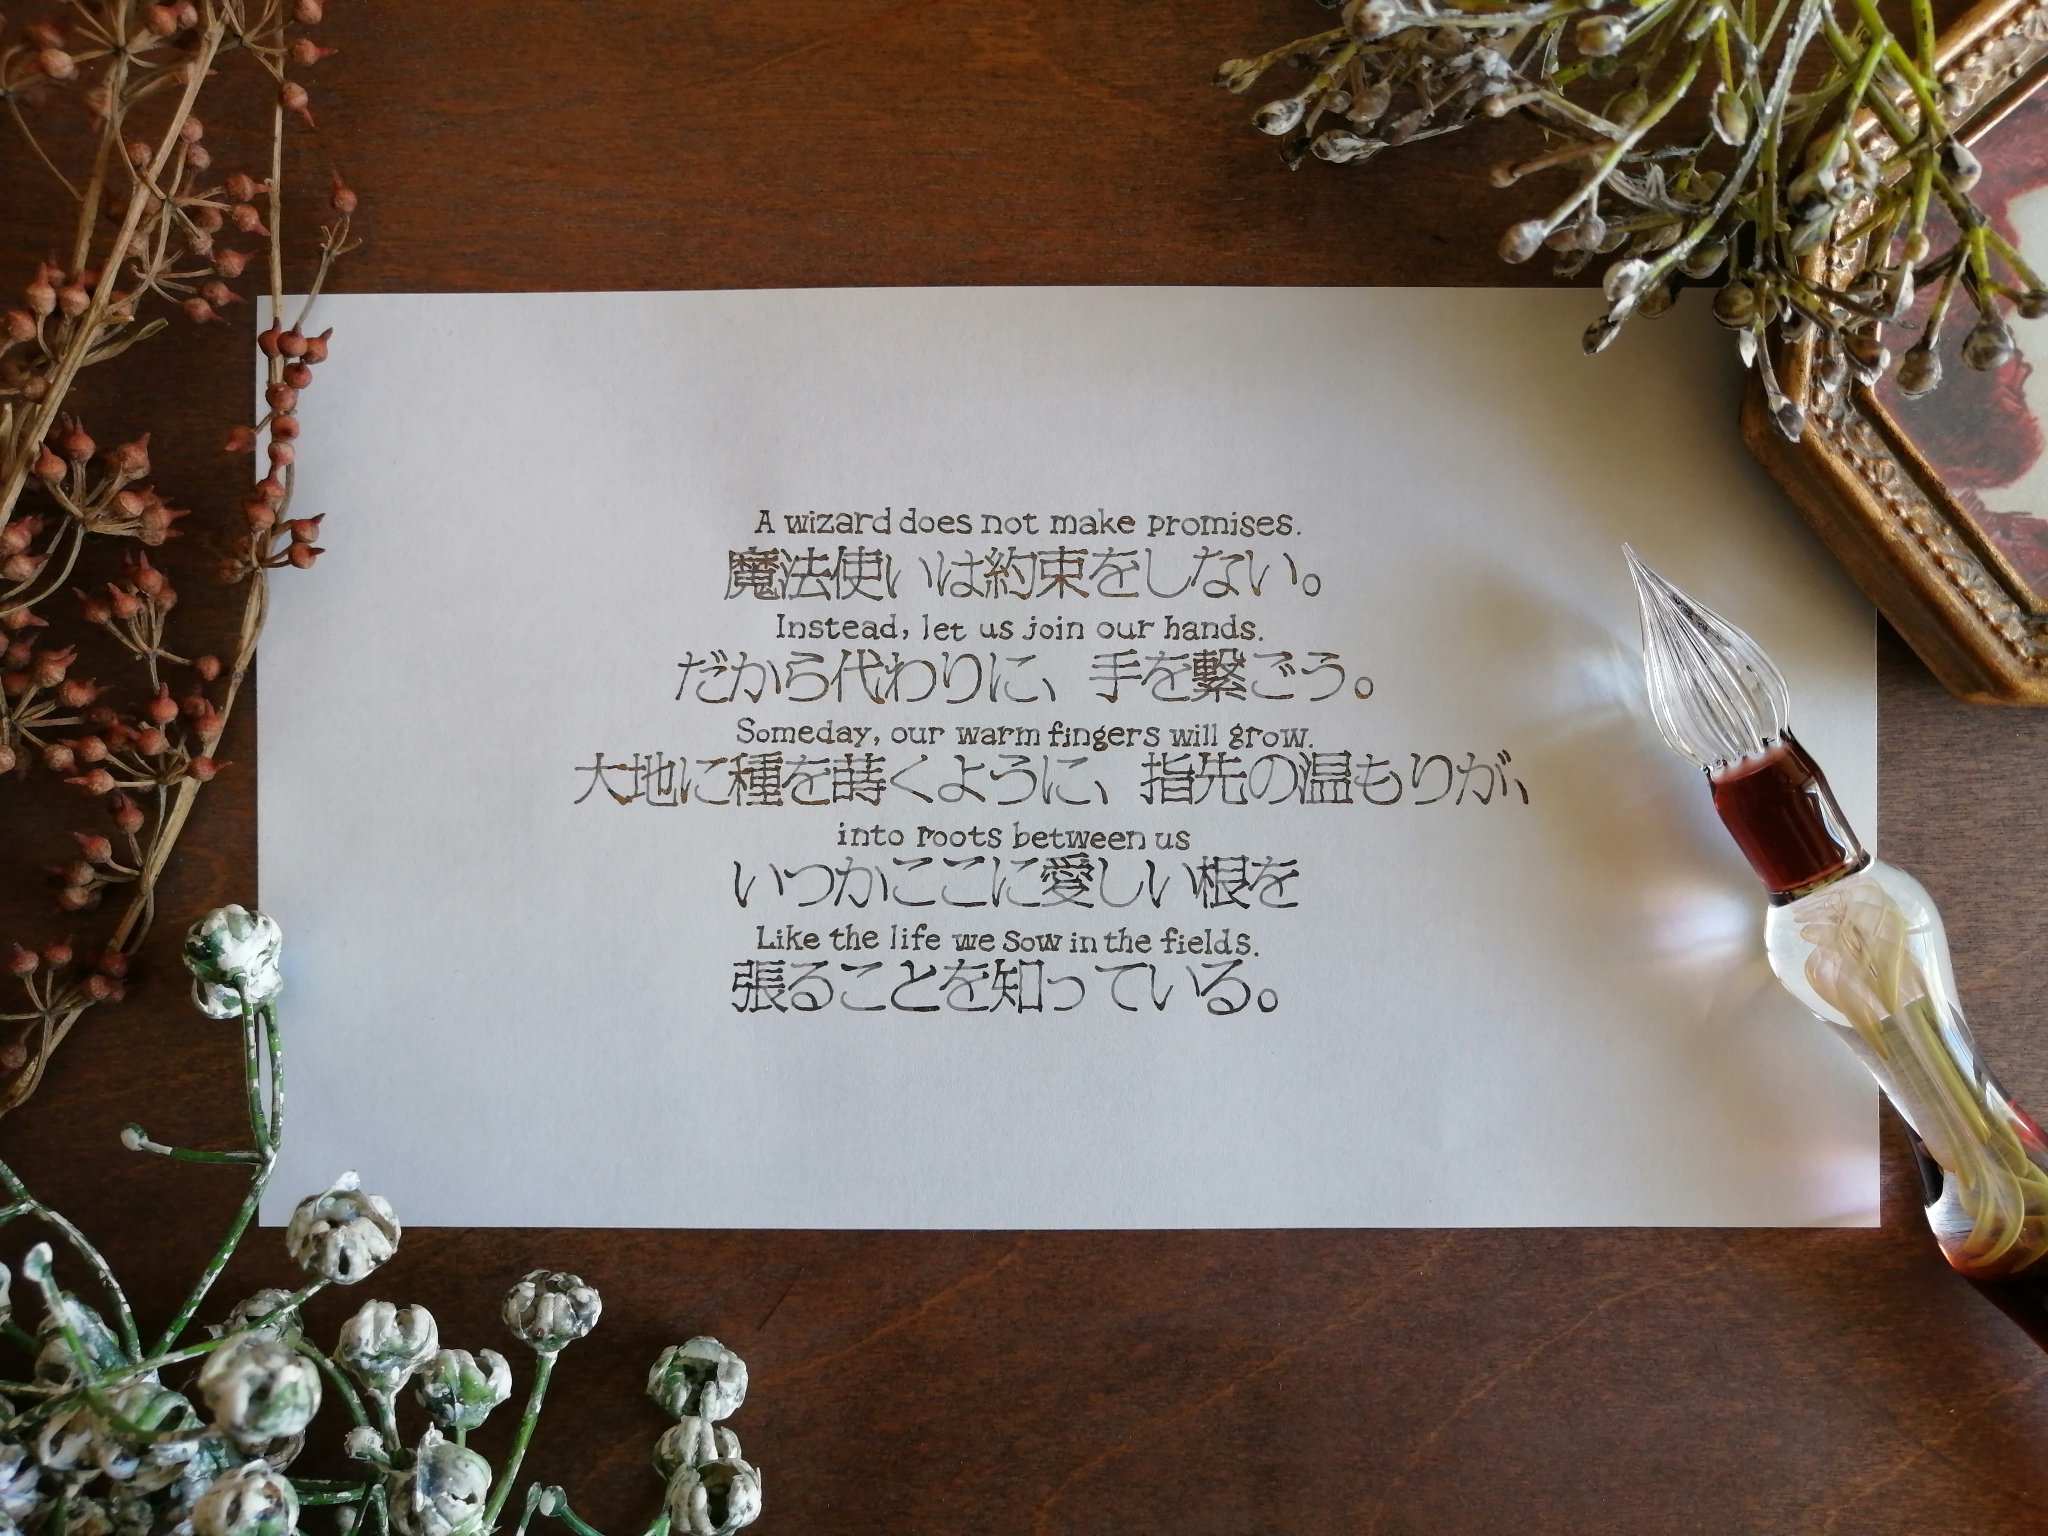 A wizard does not make promises.
魔法使いは約束をしない。
Instead, let us join our hands.
だから代わりに、手を繋ごう。
Someday, our warm fingers will grow.
大地に種を蒔くように、指先の温もりが、
into roots between us
いつかここに愛しい根を
Like the life we sow in the fields.
張ることを知っている。